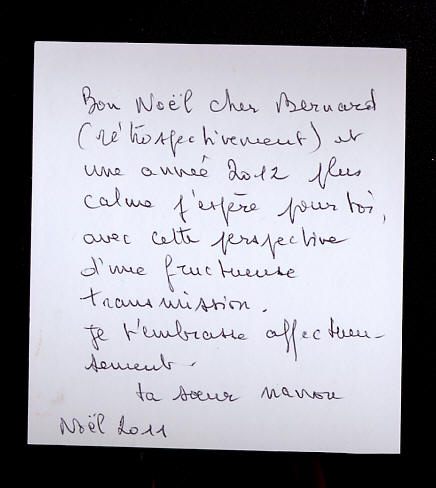 Bon Noël cher Bernard
(rétrospectivement) et
une année 2012 plus
calme j'espère pour toi,
avec cette perspective
d'une fructueuse
transmission.
Je t'embrasse affectueu-
sement.
ta soeur nanou
Noël 2011